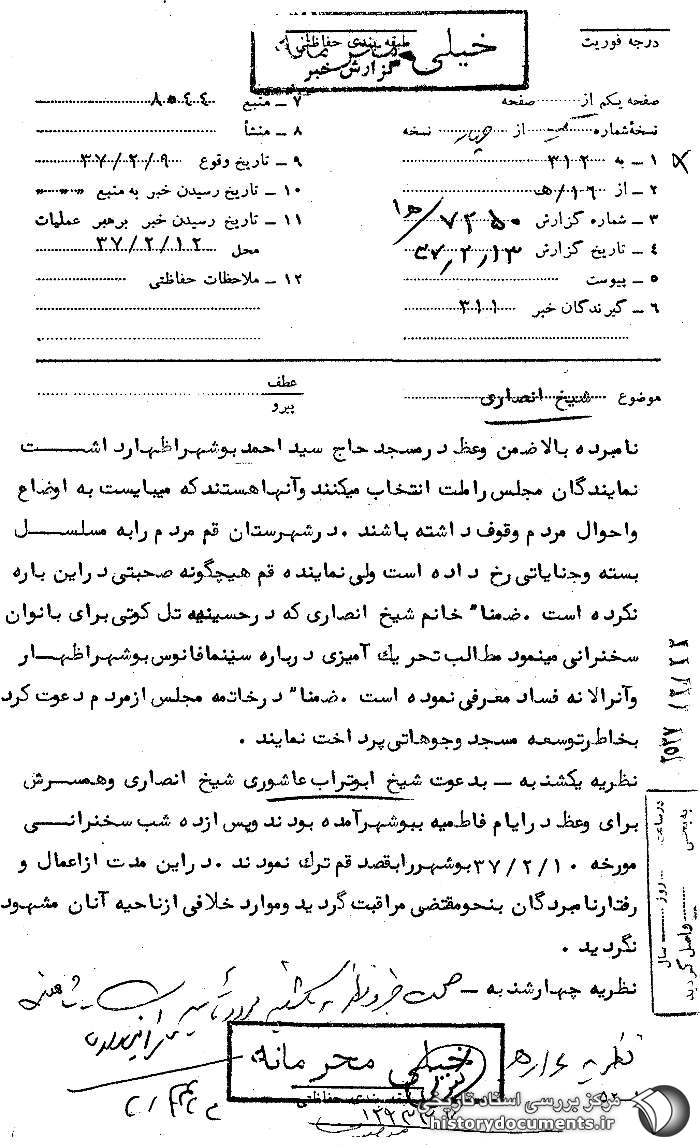 خیلی
طبقه بندی حفاظتی
گزارش خبر
درجه فوریت
صفحه یکم از صفحه
نسخهٔ شماره از نسخه
۱ ـ به ۳۱۲
۲ ـ از ۱۶/ه‍
۳ ـ شماره گزارش ۷۲۵۰/ه‍
۴ ـ تاریخ گزارش ۳۷٫۲٫۱۳
۵ ـ پیوست
۶ ـ گیرندگان خبر ۳۱۱
۷ ـ منبع ۸۰۴۴
۸ ـ منشأ
۹ ـ تاریخ وقوع ۳۷/۲/۹
۱۰ ـ تاریخ رسیدن خبر به منبع
۱۱ ـ تاریخ رسیدن خبر برهبر عملیات
محل ۳۷/۲/۱۲
۱۲ ـ ملاحظات حفاظتی
موضوع شیخ انصاری
عطف
پیرو
نامبرده بالا ضمن وعظ درمسجد حاج سید احمد بوشهر اظهارداشت
نمایندگان مجلس راملت انتخاب میکنند وآنهاهستندکه میبایست به اوضاع
واحوال مردم وقوف داشته باشند .درشهرستان قم مردم رابه مسلسل
بسته وجنایاتی رخ داده است ولی نماینده قم هیچگونه صحبتی دراین باره
نکرده است .ضمنا" خانم شیخ انصاری که درحسینیه تل کوتی برای بانوان
سخنرانی مینمود مطالب تحریك آمیزی درباره سینمافانوس بوشهر اظهار
وآنرالانه فساد معرفی نموده است .ضمنا" درخاتمه مجلس ازمردم دعوت کرد
بخاطرتوسعه مسجد وجوهاتی پرداخت نمایند .
نظریه یکشنبه ـ بدعوت شیخ ابوتراب عاشوری شیخ انصاری وهمسرش
برای وعظ درایام فاطمیه ببوشهرآمده بودند وپس ازده شب سخنرانی
مورخه ۳۷/۲/۱۰ بوشهررابقصد قم ترك نمودند .دراین مدت ازاعمال و
رفتارنامبردگان بنحومقتضی مراقبت گردید وموارد خلافی ازناحیه آنان مشهود
نگردید .
نظریه چهارشنبه ـ
نظریه
خیلی محرمانه
طبقه بندی حفاظتی
به بخش
در ساعت روز سال
واصل گردید
مرکز بررسی اسناد تاریخی
historydocuments.ir